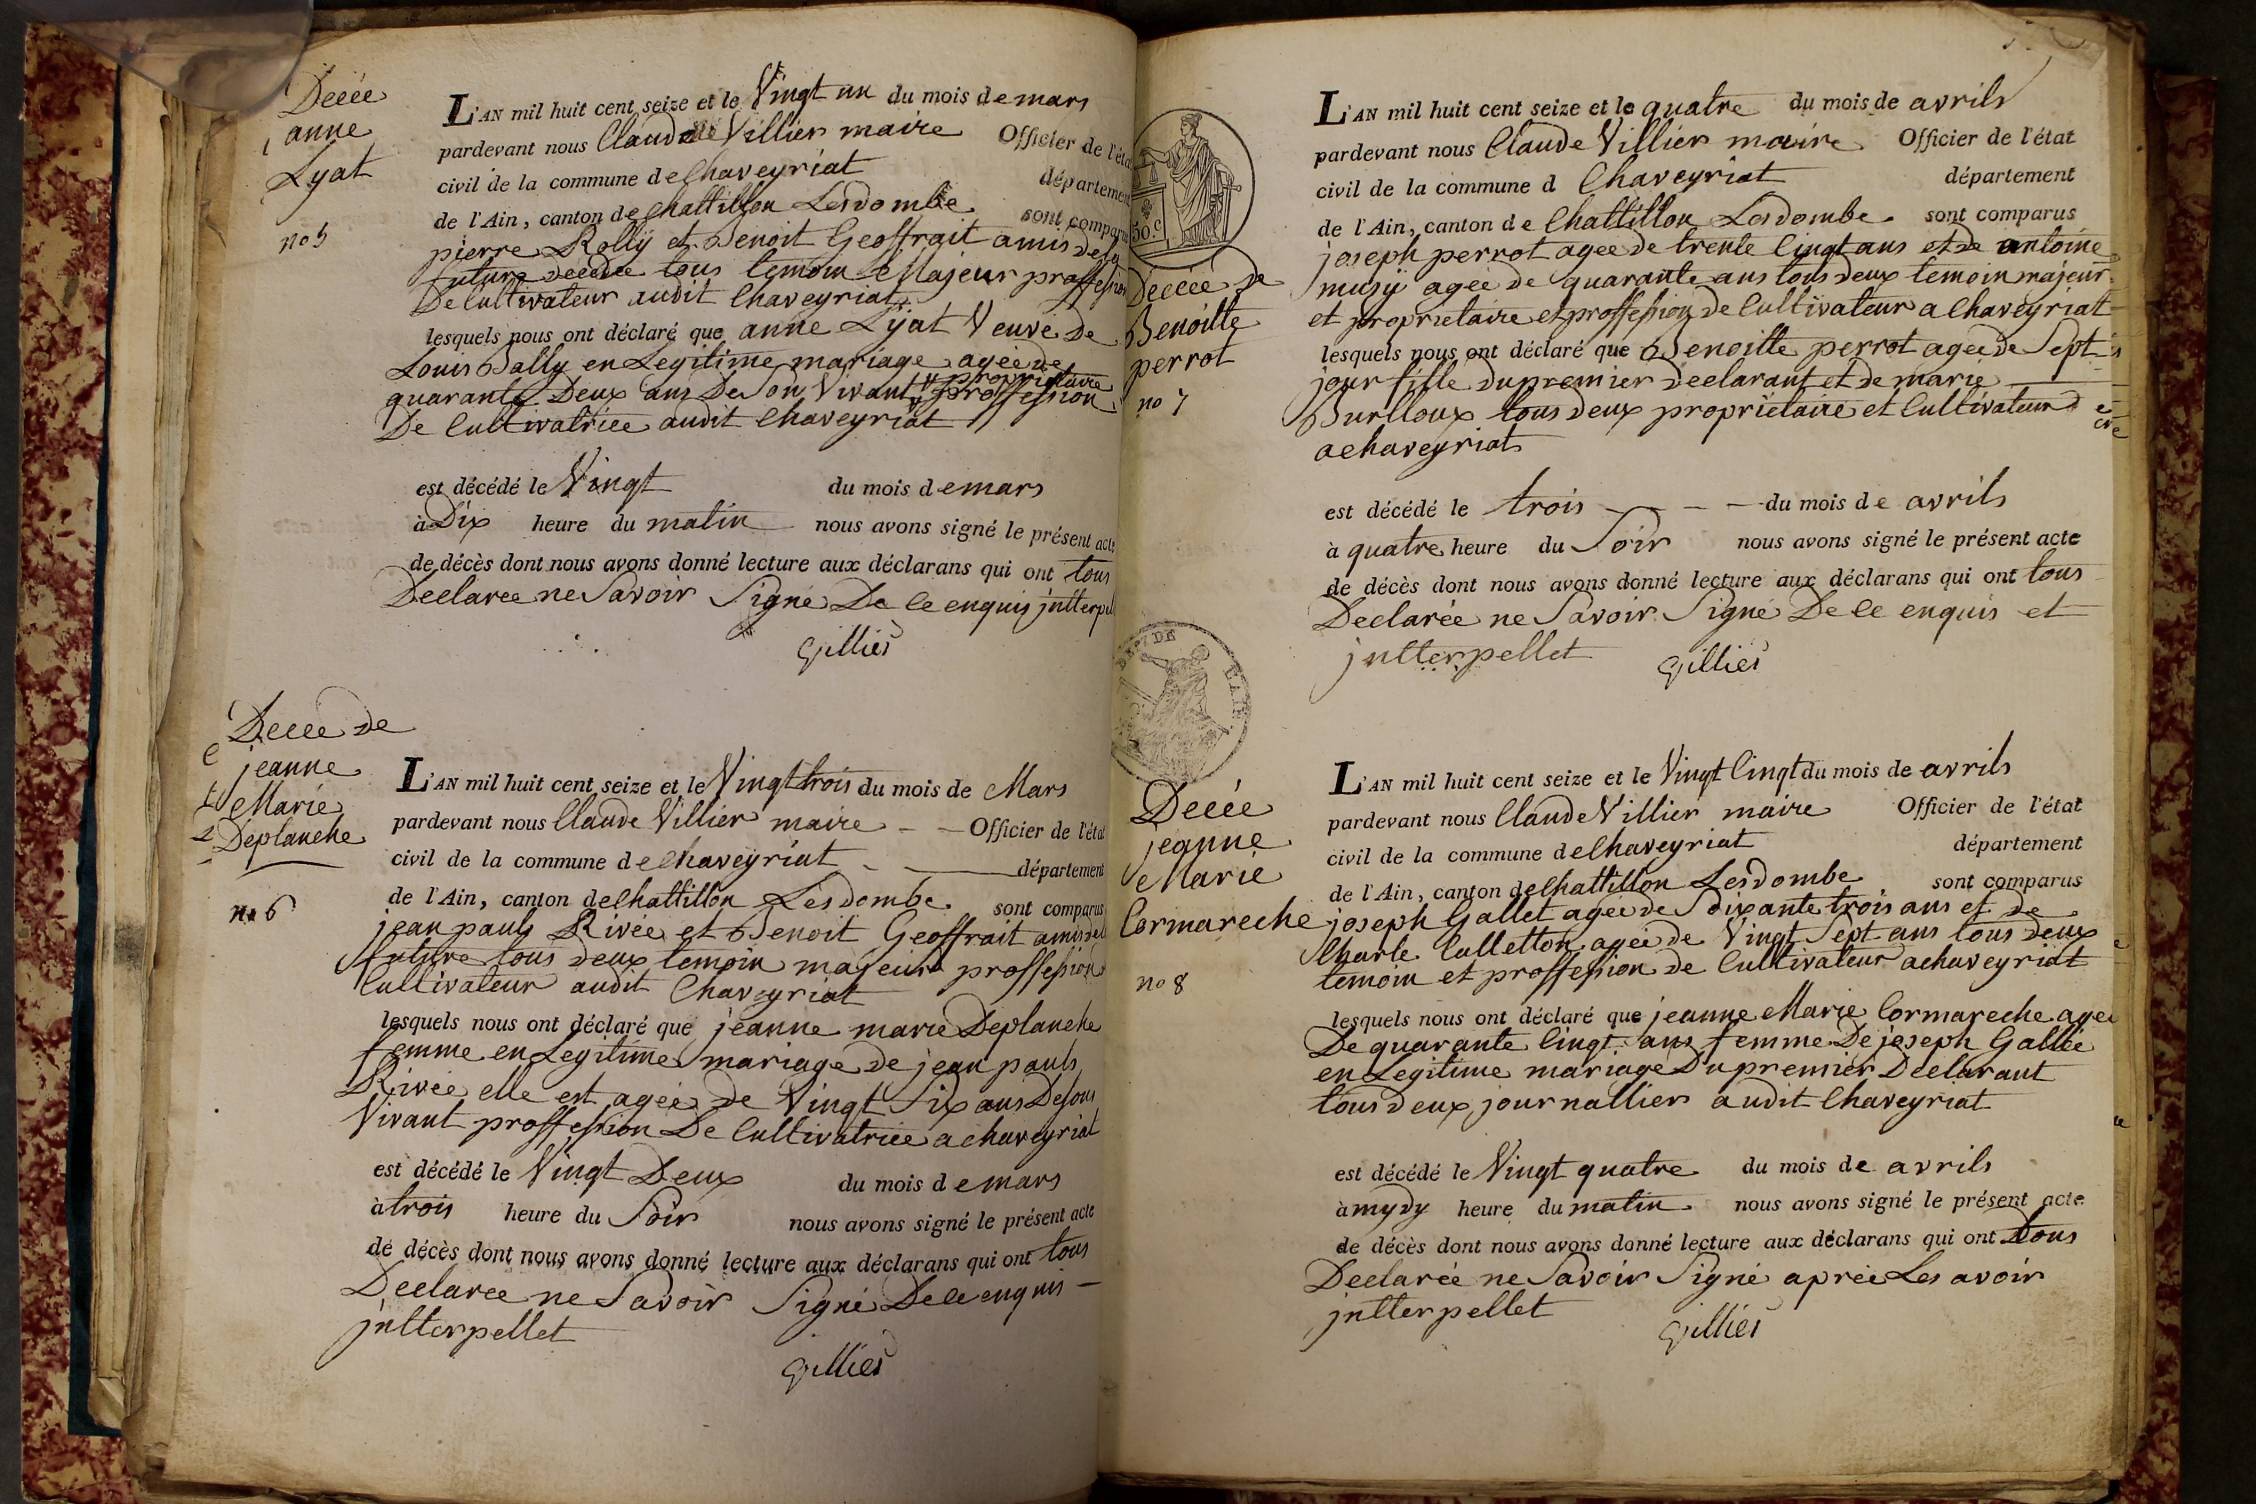 Déeée
anne
Lyat
no 5
L'AN mil huit cent seize et le Vingt un du mois de mars
pardevant nous Claude Villier maire Officier de l'état
civil de la commune de Chaveyriat département
de l'Ain, canton de Chattillon Lesdombe sont comparus
pierre Rolly et Benoit Geoffrait amis de la
future deédée tous temoin Majeur proffession
De Cultivateur audit Chaveyriat
lesquels nous ont déclaré que anne Lyat Veuve de
Louis Bally en Legitime mariage agée de
quarante Deux ans De Son Vivant propriétaire proffession
De Cultivatrice audit Chaveyriat
est décédé le Vingt du mois de mars
à Dix heure du matin nous avons signé le présent acte
de décès dont nous avons donné lecture aux déclarans qui ont tous
Declaree ne Savoir Signé De ce enquis jntterpel
Villier
Deeée de
jeanne
Marie
Deplanche
no 6
L'AN mil huit cent seize et le Vingt trois du mois de Mars
pardevant nous Claude Villier maire Officier de l'état
civil de la commune de Chaveyriat département
de l'Ain, canton de Chattillon Lesdombe sont comparus
jean pauls Rivée et Benoit Geoffrait amis de la
future tous deux temoin majeur proffession
Cultivateur audit Chaveyriat
lesquels nous ont déclaré que jeanne marie Deplanche
femme en Legitime mariage de jean pauls
Rivée elle est agée de Vingt Six ans De son
Vivant proffession De Cultivatrice a chaveyriat
est décédé le Vingt Deux du mois de mars
à trois heure du Soir nous avons signé le présent acte
de décès dont nous avons donné lecture aux déclarans qui ont tous
Declaree ne Savoir Signé De ce enquis
jntterpellet
Villier
50 c
Déeéé de
Benoitte
perrot
no 7
L'AN mil huit cent seize et le quatre du mois de avrils
pardevant nous Claude Villier maire Officier de l'état
civil de la commune d Chaveyriat département
de l'Ain, canton de Chattillon Lesdombe sont comparus
joseph perrot agee de trente Cinqt ans et de antoine
musy agée de quarante ans tous deux temoin majeur
et proprietaire et proffession de Cultivateur a Chaveyriat
lesquels nous ont déclaré que Benoitte perrot agée de Sept
jour fille du premier Declarant et de marie
Burlloux tous deux propriétaire et Cultivateur
a chaveyriat
est décédé le trois du mois de avrils
à quatre heure du Soir nous avons signé le présent acte
de décès dont nous avons donné lecture aux déclarans qui ont tous
Declarée ne Savoir Signé De ce enquis et
jntterpellet
Villier
DEPT DE L'AIN
Deéée
jeanne
Marie
Cormareche
no 8
L'AN mil huit cent seize et le Vingt Cinqt du mois de avrils
pardevant nous Claude Villier maire Officier de l'état
civil de la commune de Chaveyriat département
de l'Ain, canton de Chattillon Lesdombe sont comparus
joseph Gallet agée de Soixante trois ans et de
Charle Culletton agée de Vingt Sept ans tous deux
temoin et proffession de Cultivateur a chaveyriat
lesquels nous ont déclaré que jeanne Marie Cormareche agee
De quarante Cinqt ans femme De joseph Gallée
en Legitime mariage Du premier Declarant
tous Deux journallier audit Chaveyriat
est décédé le Vingt quatre du mois de avrils
à mydy heure du matin nous avons signé le présent acte
de décès dont nous avons donné lecture aux déclarans qui ont tous
Declarée ne Savoir Signé aprée Les avoir
jntterpellet
Villier